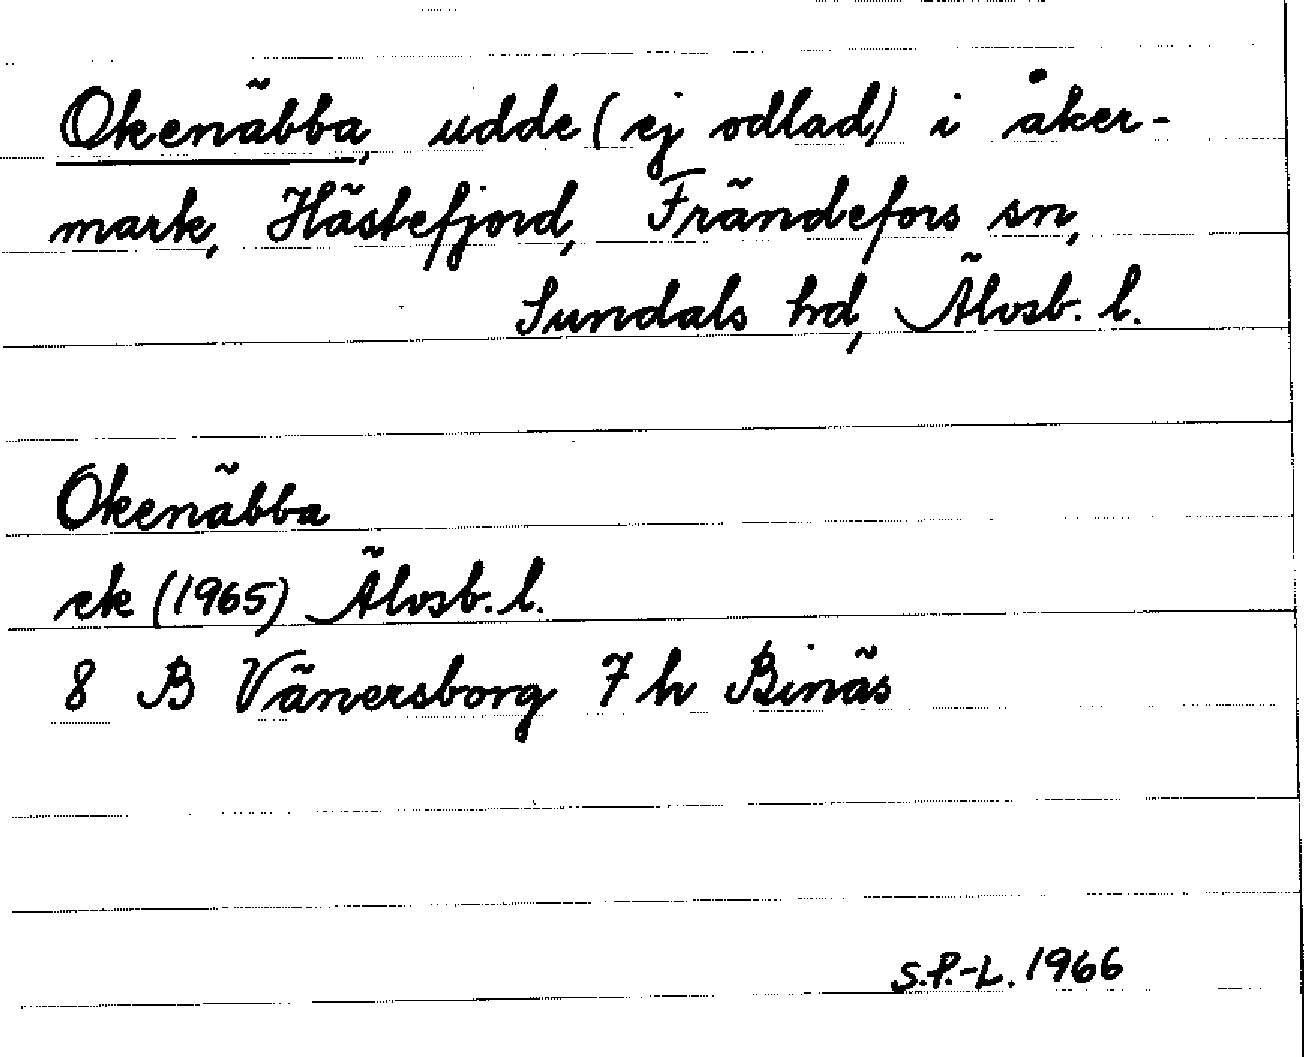 Okenäbba, udde (ej odlad) i åker-
mark, Hästefjord, Frändefors sn,
Sundals hd, Älvsb. l.
Okenäbba
ek (1965) Älvsb. l.
8 B Vänersborg 7 h Binäs
S.P.-L. 1966